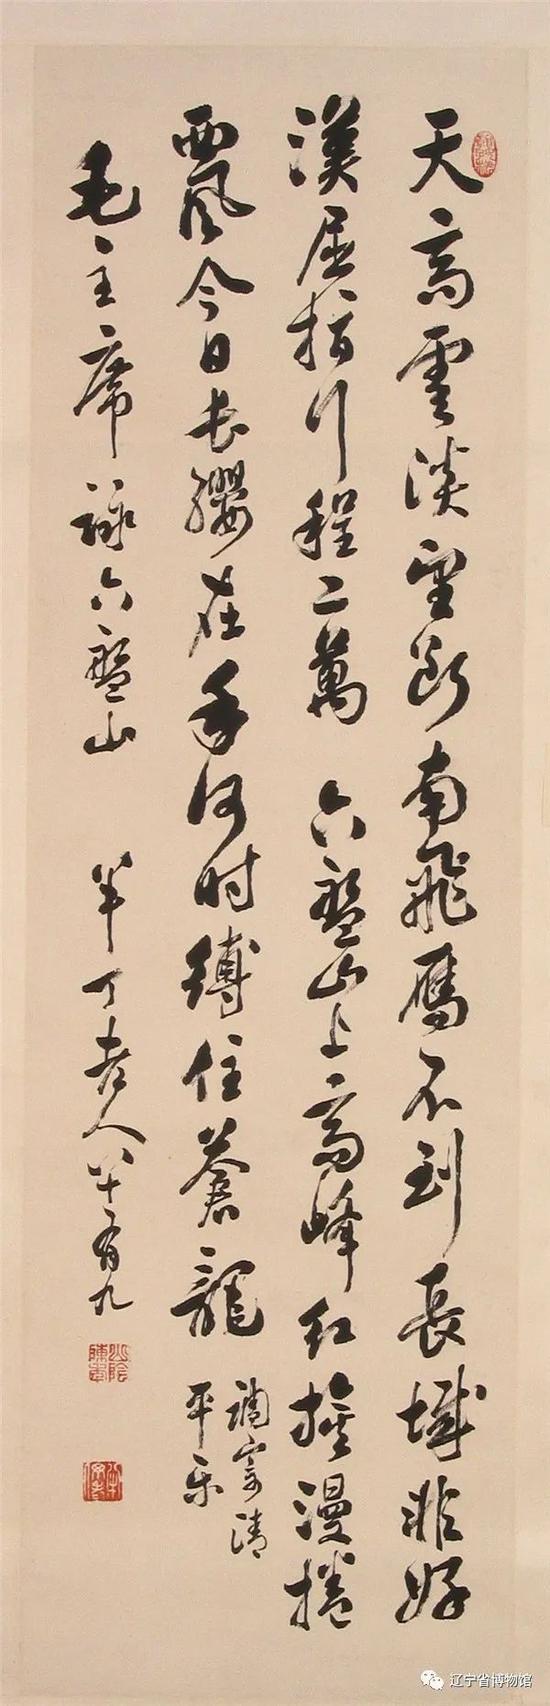 天高雲淡望斷南飛雁不到長城非好
漢屈指行程二萬 六盤山上高峰紅旗漫捲
西風今日長纓在手何時縛住蒼龍
調寄清
平樂
毛主席詠六盤山 半丁老人八十有九
山陰陳年
辽宁省博物馆